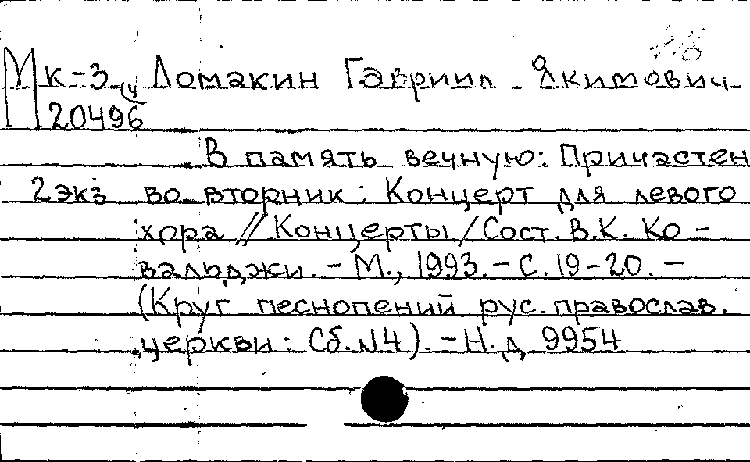 Мк-3 Ломакин Гавриил Якимович
20496
В память вечную: Причастен
2 экз во вторник: Концерт для левого
хора // Концерты / Сост. В.К. Ко-
вальджи. - М., 1993. - С. 19-20. -
(Круг песнопений рус. православ.
церкви: Сб. №4). - Н.д 9954